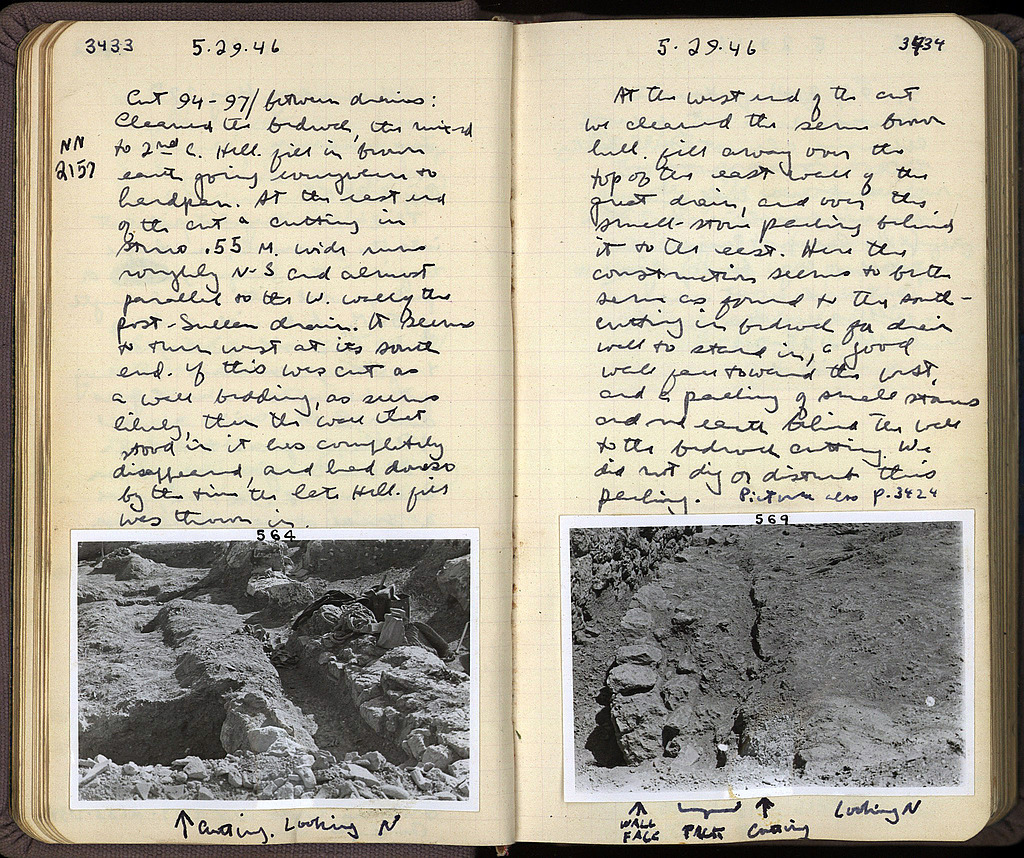 3433 5·29·46
NN
2157
Cut 94-97/ between drains:
Cleaned the bedrock, the mixed
to 2nd C. Hell. fill in brown
earth going everywhere to
hardpan. At the east end
of the cut a cutting in
.55 M. wide runs
roughly N-S and almost
parallel to the W. wall of the
post-Sullan drain. It seems
to turn west at its south
end. If this was cut as
a wall bedding, as seems
likely, then the wall that
stood in it has completely
disappeared, and had done so
by the time the late Hell. fill
was thrown in.
564
↑ Cutting. Looking N
5·29·46 3434
At the west end of the cut
we cleaned the same brown
hell. fill away over the
top of the east wall of the
great drain, and over the
small-stone packing behind
it to the east. Here the
construction seems to be the
same as found to the south-
cutting in bedrock for drain
wall to stand in, a good
wall face toward the west,
and a packing of small stones
and earth behind the wall
to the bedrock cutting. We
did not dig or disturb this
packing. Picture also p. 3424
569
↑ ↑ Looking N
WALL PACK Cutting
FACE